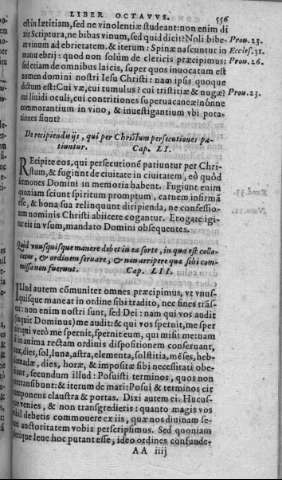 LIBER OCTAVVS. 556
est in lætitiam, sed ne vinolentiæ studeant: non enim di
Scriptura, ne bibas vinum, sed quid dicit? Noli bibe- Prou. 23.
vinum ad ebrietatem. & iterum: Spinæ nascuntur in Ecclesi. 31.
manu ebrij: quod non solùm de clericis præcipimus: Prou. 26.
sed etiam de omnibus laicis, super quos inuocatum est
nomen domini nostri Iesu Christi: nam ipsis quoque
dictum est: Cui væ, cui tumultus? cui tristitiæ & nugæ? Prou. 23.
cui liuidi oculi, cui contritiones superuacaneæ? nónne
commorantium in vino, & inuestigantium vbi pota-
tiones fiunt?
De recipiendis ijs, qui per Christum persecutionem pa-
tiuntur. Cap. LI.
REcipite eos, qui persecutionẽ patiuntur per Chri-
stum, & fugiunt de ciuitate in ciuitatem, eò quòd
sermones Domini in memoria habent. Fugiunt enim
quoniam sciunt spiritum promptum, carnem infirmã
esse, & bona sua relinquunt diripienda, ne confessio-
nem nominis Christi abiicere cogantur. Erogate igi-
tur eis in vsum, mandato Domini obsequentes.
Quòd vnusquisque manere debet in ea sorte, in qua est collo-
catus, & ordinem seruare, & non arripere quæ sibi com-
missa non fuerunt. Cap. LII.
Illud autem cõmuniter omnes præcipimus, vt vnus-
quisque maneat in ordine sibi tradito, nec fines trãs-
eat: non enim nostri sunt, sed Dei: nam qui vos audit
(inquit Dominus) me audit: & qui vos spernit, me sper
nit: qui verò me spernit, spernit eum, qui misit me. nam
anima rectam ordinis dispositionem conseruant,
nox, dies, sol, luna, astra, elementa, solstitia, mẽses, heb-
domadæ, dies, horæ, & impositæ sibi necessitati obe-
diunt, secundum illud: Posuisti terminos, quos non
transibunt: & iterum de mari: Posui & terminos cir
componens claustra & portas. Dixi autem ei: Hucus-
que venies, & non transgredieris: quanto magis vos
nihil debetis commouere ex iis, quæ nos diuinam se-
cuti auctoritatem vobis perscripsimus. Sed quoniam
quoque leue hoc putant esse, ideo ordines confunde-
AA iiij